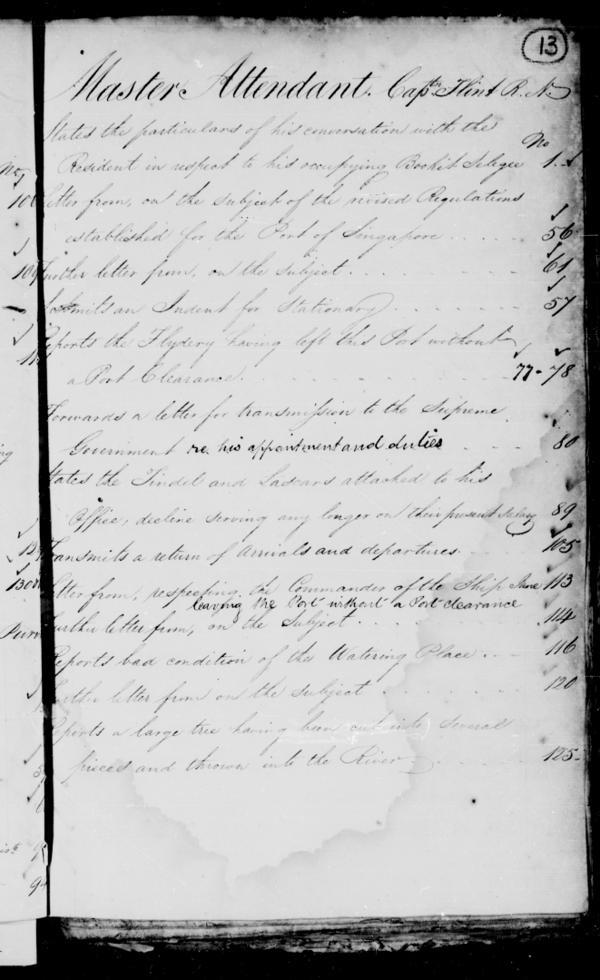 13
Master Attendant. Captn Flint R. N.
States the particulars of his conversation with the
No
Resident in respect to his occupying Bookit Seligee 1.
Letter from, on the subject of the revised Regulations
established for the Port of Singapore . . . . . 56
Further letter from, on the subject . . . . 61
Transmits an Indent for Stationary . . . . . . 57
Reports the Flydery having left this Port without
a Port Clearance. . . . . . . 77-78
Forwards a letter for transmission to the Supreme
Government re. his appointment and duties . . . 80
States the Tindel and Lascars attached to his
Office, decline serving any longer on their present Salary 89
Transmits a return of arrivals and departures . . 105
Letter from, respecting the Commander of the Ship Jane 113
leaving the Port without a Port clearance
Further letter from, on the subject . . . . 114
Reports bad condition of the Watering Place . . . 116
Further letter from on the subject . . . . . 120
Reports a large tree having been cut into several
pieces and thrown into the River . . . . . 125